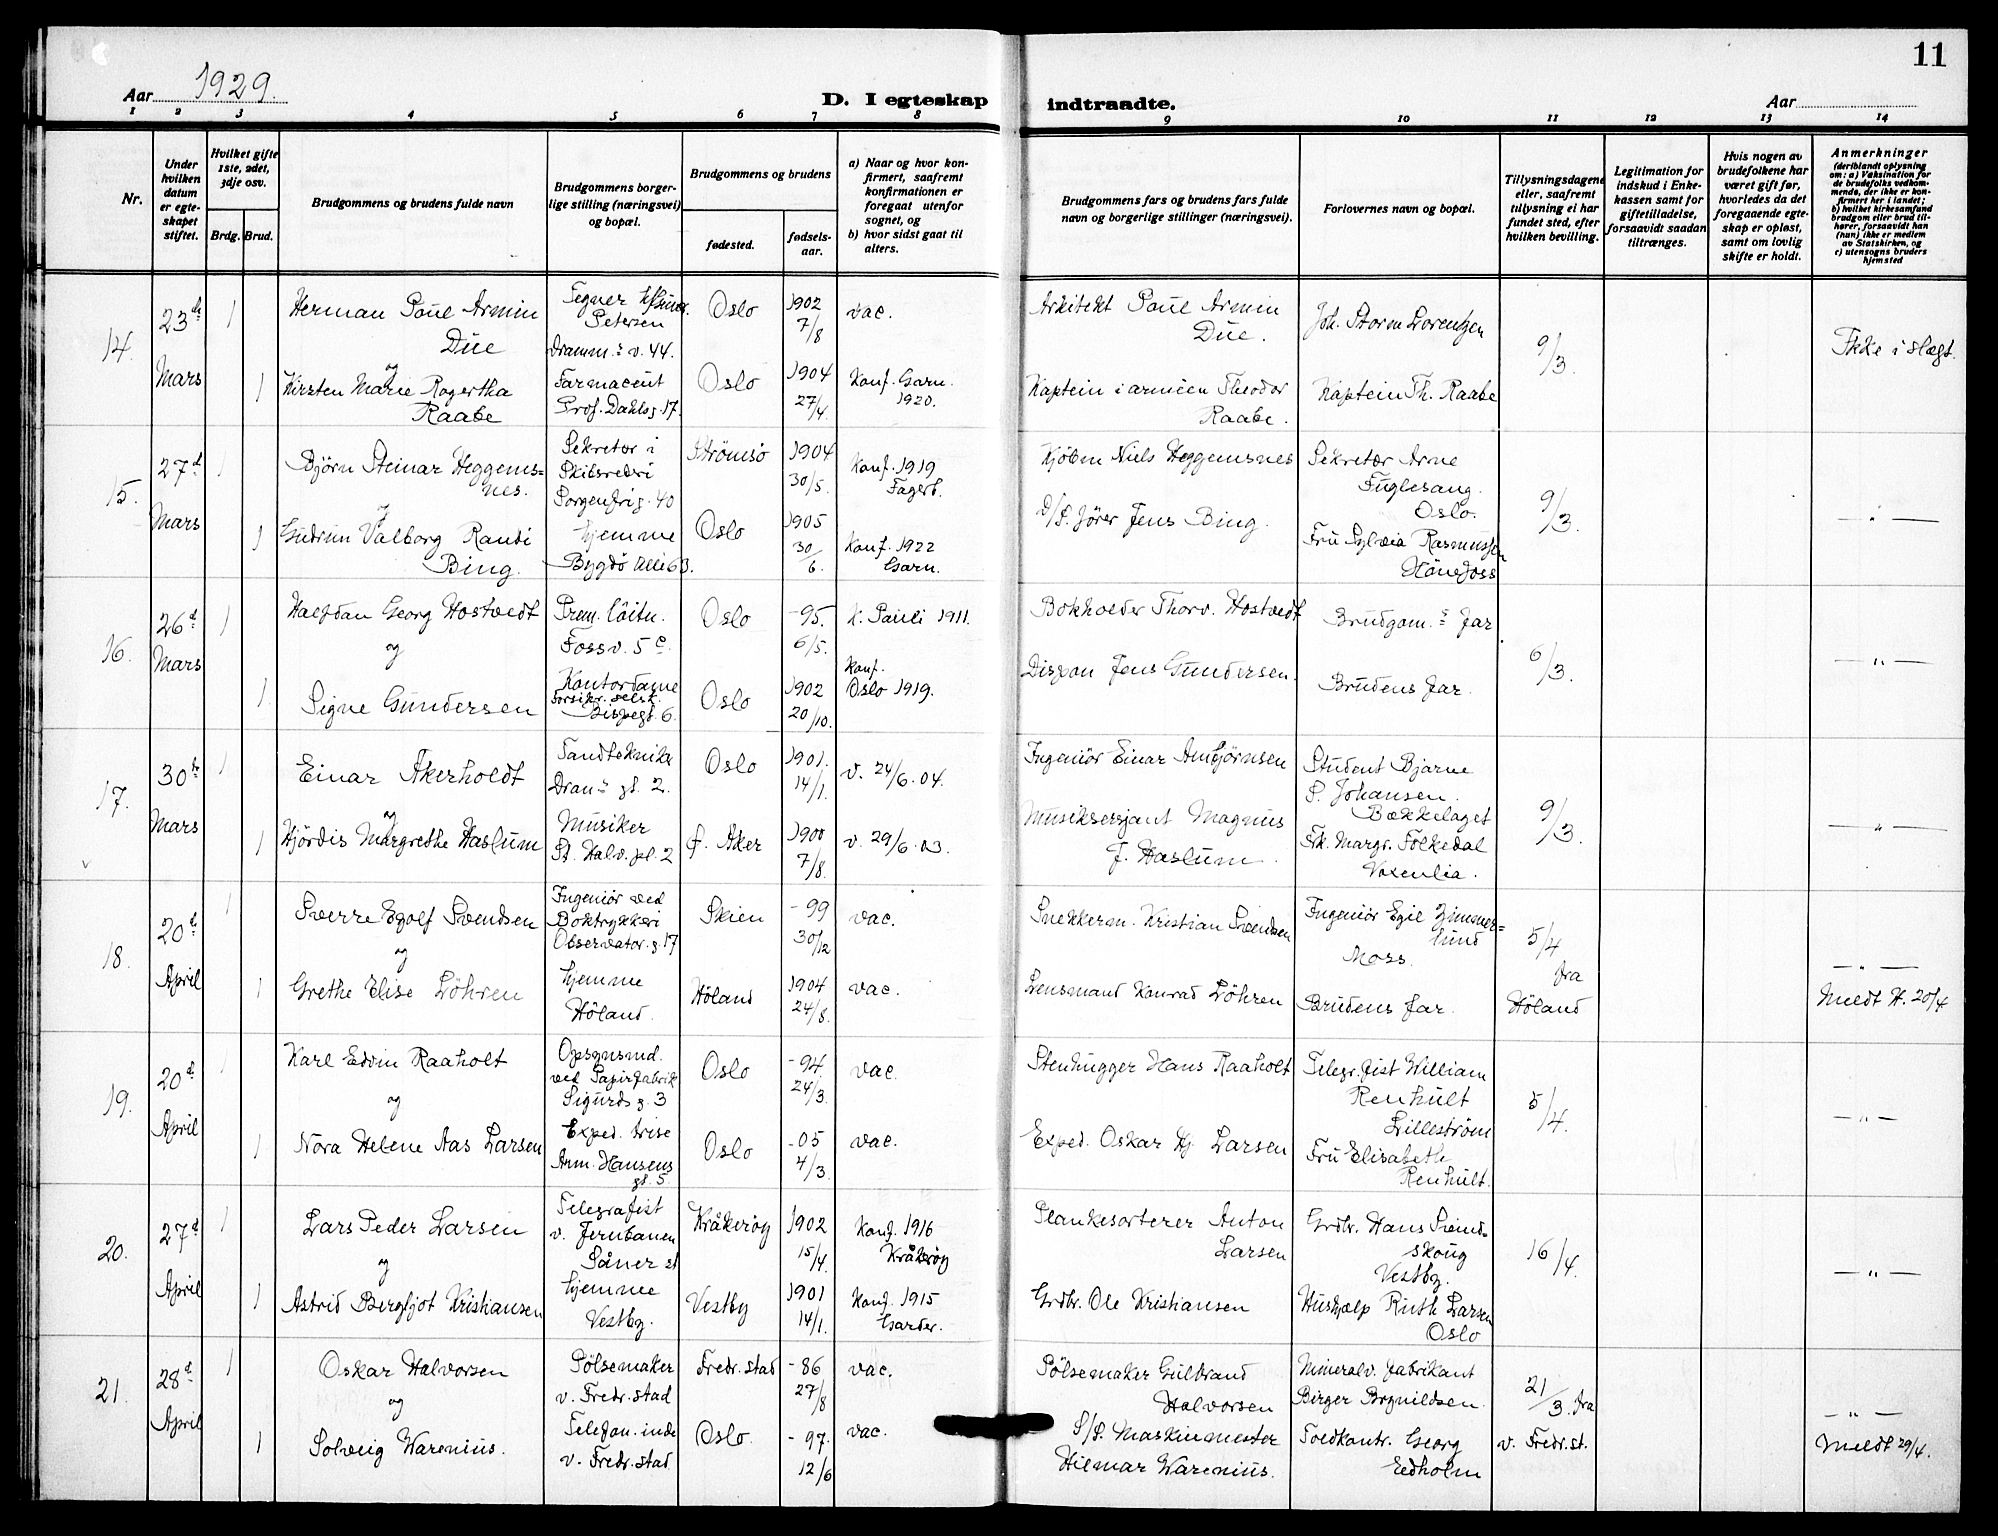 11
Aar 1929.
D. I egteskap indtraadte.
Aar
1 2 3 4 5 6 7 8 9 10 11 12 13 14
Nr.
Under hvilken datum er egteskapet stiftet.
Hvilket gifte 1ste, 2det, 3dje osv.
Brdg. Brud.
Brudgommens og brudens fulde navn
Brudgommens borgerlige stilling (næringsvei) og bopæl.
Brudgommens og brudens
fødested.
fødselsaar.
a) Naar og hvor konfirmert, saafremt konfirmationen er foregaat utenfor sognet, og
b) hvor sidst gaat til alters.
Brudgommens fars og brudens fars fulde navn og borgerlige stillinger (næringsvei).
Forlovernes navn og bopæl.
Tillysningsdagene eller, saafremt tillysning ei har fundet sted, efter hvilken bevilling.
Legitimation for indskud i Enkekassen samt for giftetilladelse, forsaavidt saadan tiltrænges.
Hvis nogen av brudefolkene har været gift før, hvorledes da det foregaaende egteskap er opløst, samt om lovlig skifte er holdt.
Anmerkninger
(deriblandt oplysning om: a) Vaksination for de brudefolks vedkommende, der ikke er konfirmert her i landet; b) hvilket kirkesamfund brudgom eller brud tilhører, forsaavidt han (hun) ikke er medlem av Statskirken, og c) utensogns bruders hjemsted
14.
23de Mars
1
Herman Poul Armin
Due
og
Tegner
Petersen
Dramm.s v. 44.
Oslo
1902
7/8
vac.
Arkitekt Poul Armin
Due.
Joh. Storm Lorentzen
9/3.
Ikke i slegt.
1
Kirsten Marie Ragertha
Raabe
Farmaceut
Prof. Dahls g. 17.
Oslo
1904
27/4.
Konf. Garn.
1920.
Kaptein i armeen Theodor
Raabe.
Kaptein Th. Raabe
15.
27d Mars
1
Björn Steinar Heggems=
nes.
og
Sekretær i
Skibsrederi
Sorgenfrig. 40
Strömsö
1904
30/5.
Konf. 1919
Fagerb.
Kjöbm Niels Heggemsnes
Sekretær Arne
Fuglesang.
Oslo.
9/3.
— " —
1
Gudrun Valborg Randi
Bing.
hjemme
Bygdö Allé 63.
Oslo
1905
30/6.
Konf. 1922
Garn.
D/S. förer Jens Bing.
Fru Sylvia Rasmussen
Hönefoss
16.
26d Mars
1
Halfdan Georg Hostvedt
og
Prem. löitn.
Fossv. 5 c.
Oslo
-95.
6/5.
K. Pauli 1911.
Bokholder Thorv. Hostvedt
Brudgom.s far
6/3.
— " —
1
Signe Gundersen
Kontordame
forsikr. selsk.
Bispegt. 6.
Oslo
1902
20/10.
Konf.
Oslo 1919.
Dispon Jens Gundersen.
Brudens far.
17.
30te Mars
1
Einar Åkerholdt
og
Tandteknika
Dram.s gt. 2.
Oslo
1901.
14/1.
v. 24/6. 04.
Ingeniör Einar Ambjörnsen
Student Bjarne
S. Johansen.
Bækkelaget
9/3.
— " —
1
Hjördis Margrethe Haslum
Musiker
St. Halv. pl. 2
f. Aker
1900
7/8.
v. 29/6. 03.
Musiksersjant Magnus
F. Haslum.
Frk. Margr. Folkedal
Voxenlia.
18.
20d April
1
Sverre Egolf Svendsen
og
Ingeniör ved
Boktrykkeri
Observator. g. 17
Skien
-99
30/12
vac.
Snekkerm. Kristian Svendsen
Ingeniör Egil Zimmer=
lund
Moss.
5/4
fra
Höland
— " —
Meldt H. 20/4
1
Grethe Elise Löhren
hjemme
Höland.
Höland
1904
24/8.
vac.
Lensmand Konrad Löhren
Brudens far.
19.
20d April
1
Karl Edvin Raaholt
og
Opsynsmd.
ved Papirfabrik
Sigurds g. 3
Oslo
-94.
24/3.
vac.
Stenhugger Hans Raaholt
Telegrafist William
Renhult
Lilleström
5/4.
— " —
1
Nora Helene Aas Larsen
Exped. trise
Arm. Hansens
gt. 5.
Oslo
-05
4/3
vac.
Exped. Oskar Hj Larsen
Fru Elisabeth
Renhult.
20.
27d April
1
Lars Peder Larsen
og
Telegrafist
v. Jernbanen
Såner st
Kråkeröy
1902
15/4.
Konf. 1916
Kråkeröy
Plankesorterer Anton
Larsen
Grdbr. Hans Svind-
skoug
Vestby.
16/4.
— " —
1
Astrid Bergljot Kristiansen
hjemme
Vestby.
Vestby
1901
14/1.
Konf. 1915
Garder.
Grdbr. Ole Kristiansen
Hushjelp Ruth Larsen
Oslo
21.
28d April
1
Oskar Halvorsen
og
Pölsemaker
v. Fredr.stad
Fredr.stad
-86
27/8
vac.
Pölsemaker Gulbrand
Halvorsen
Mineralv. fabrikant
Birger Brynildsen.
21/3. fra
v. Fredr.st.
— " —
Meldt 29/4.
1
Solveig Warenius.
Telefon. inde
v. Fredr.stad
Oslo.
-97.
12/6
vac.
S/S. Maskinmester
Hilmar Warenius.
Toldkontr. Georg
Edholm